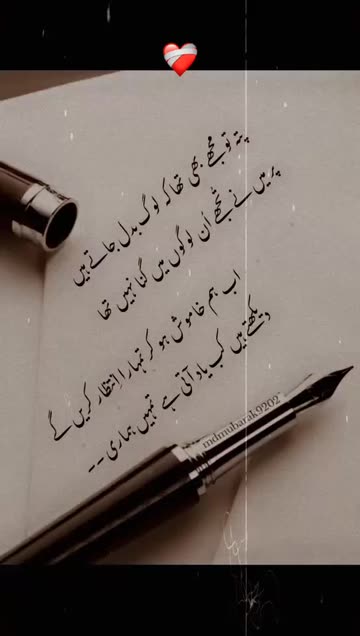 پتہ تو مجھے بھی تھا کہ لوگ بدل جاتے ہیں
پر میں نے تجھے اُن لوگوں میں گنا نہیں تھا
اب ہم خاموش ہو کر تمہارا انتظار کریں گے
دیکھتے ہیں کب یاد آتی ہے تمہیں ہماری --
mdmubarak9202